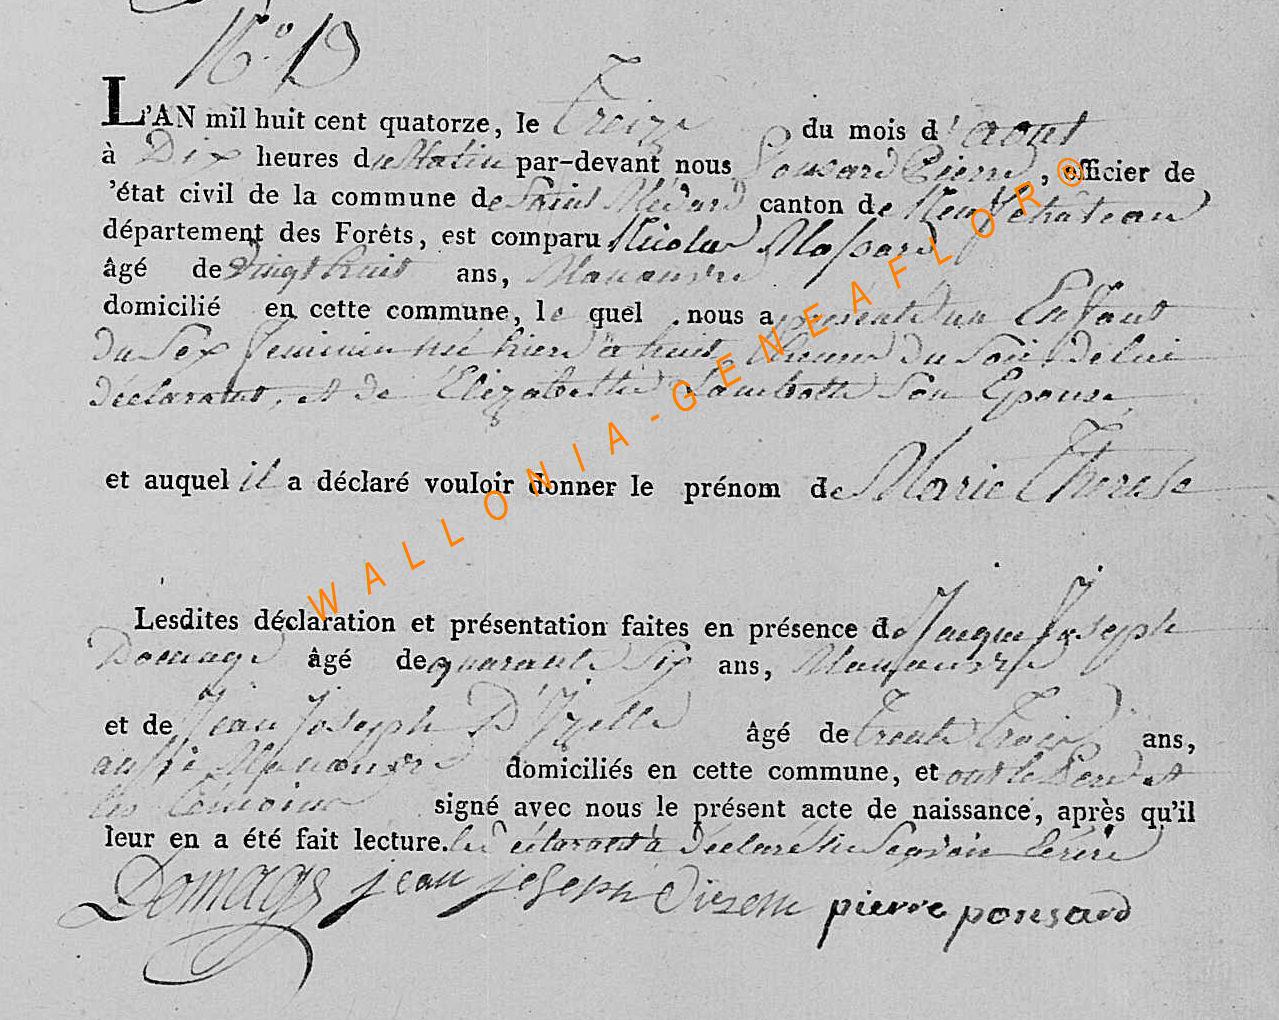 N.o 13
L'AN mil huit cent quatorze, le Treize du mois d'aout
à Dix heures du Matin par-devant nous Ponsard Pierre, officier de
'état civil de la commune de Saint Médard canton de Neufchâteau
département des Forêts, est comparu Nicolas Maſsard
âgé de vingt huit ans, Manouvre
domicilié en cette commune, le quel nous a présenté un Enfant
du Sex feminin né hier à huit heures du Soir, de lui
déclarant, et de Elizabethe Lambotte Son Epouse,
et auquel il a déclaré vouloir donner le prénom de Marie Therese
Lesdites déclaration et présentation faites en présence de Jacque Joseph
Domage âgé de quarante Six ans, Manouvre
et de Jean Joseph D'Izelle âgé de trente Trois ans,
aussi Manouvre domiciliés en cette commune, et ont le Pere et
les témoins signé avec nous le présent acte de naissance, après qu'il
leur en a été fait lecture. le déclarant a déclaré ne Savoir écrire
Domage jean joseph Dizelle pierre ponsard
WALLONIA-GENEAFLOR®